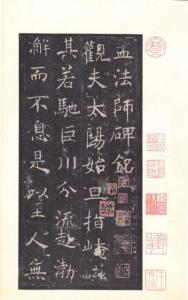 孟法師碑銘
觀夫太陽始旦指崦嵫
其若馳巨川分流趍渤
澥而不息是以至人無